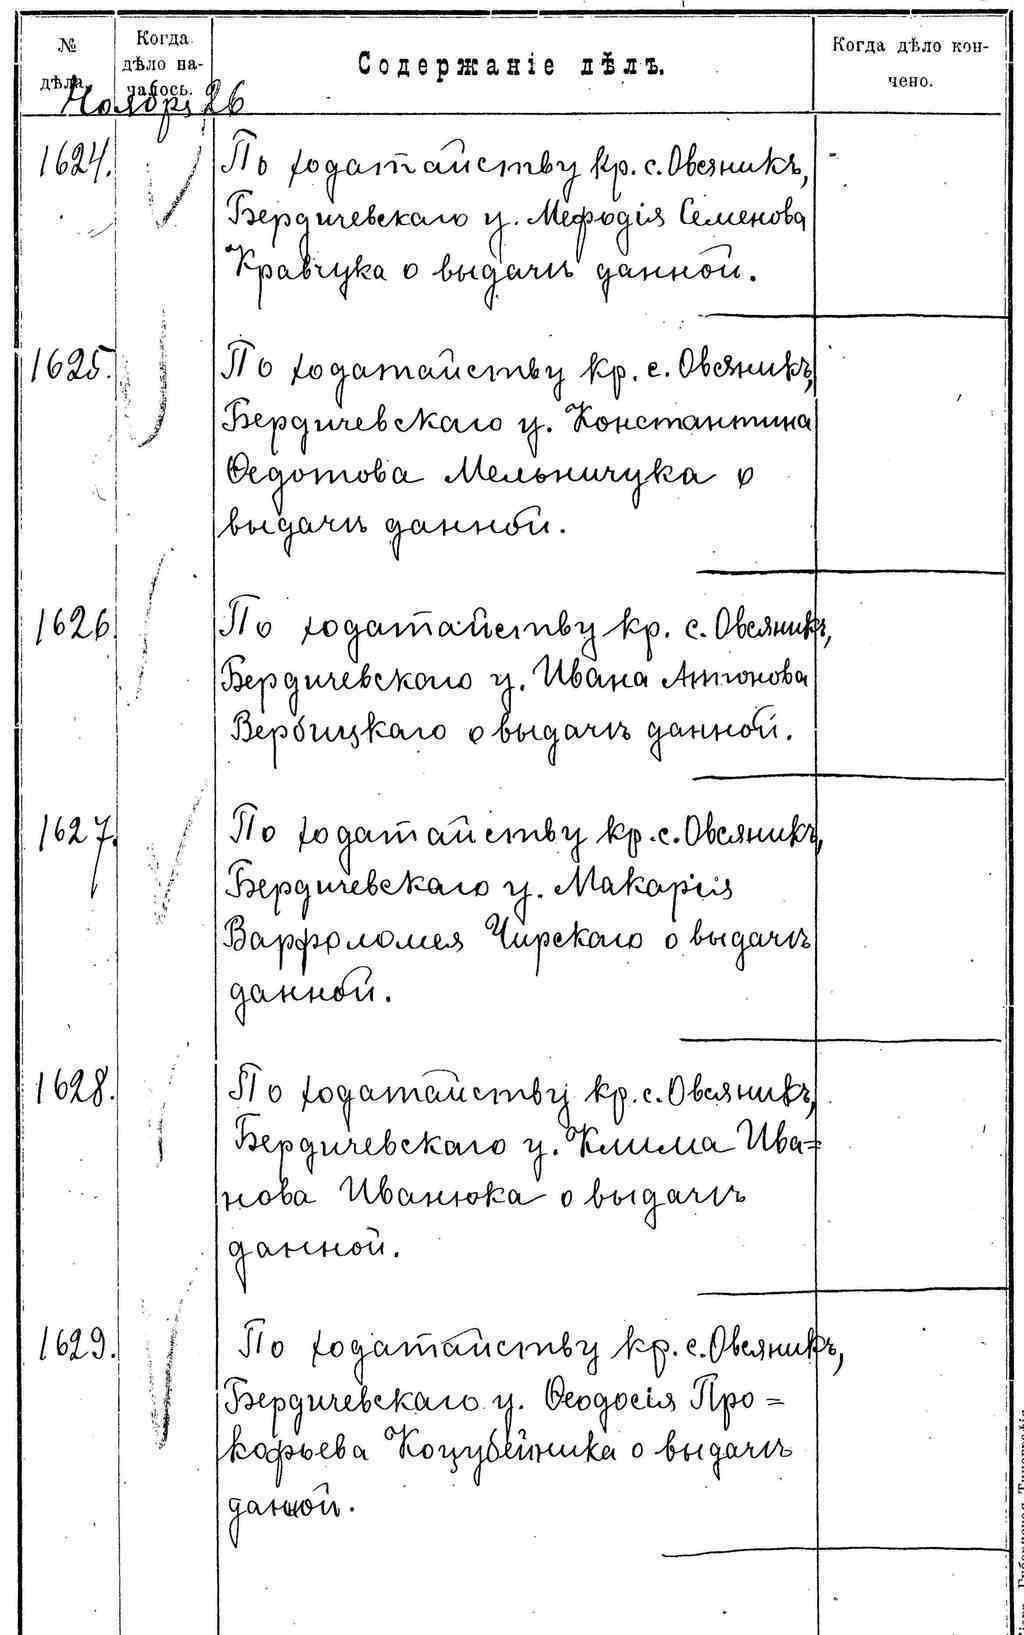 № дѣла.
Когда дѣло на-
чалось.
Содержаніе дѣлъ.
Когда дѣло кон-
чено.
Ноября 26
1624.
По ходатайству кр. с. Овсяникъ,
Бердичевскаго у. Мефодія Семенова
Кравчука о выдачѣ данной.
1625.
По ходатайству кр. с. Овсяникъ,
Бердичевскаго у. Константина
Ѳедотова Мельничука о
выдачѣ данной.
1626.
По ходатайству кр. с. Овсяникъ,
Бердичевскаго у. Ивана Антонова
Вербицкаго о выдачѣ данной.
1627.
По ходатайству кр. с. Овсяникъ,
Бердичевскаго у. Макарія
Варфоломея Чирскаго о выдачѣ
данной.
1628.
По ходатайству кр. с. Овсяникъ,
Бердичевскаго у. Клима Ива=
нова Иванюка о выдачѣ
данной.
1629.
По ходатайству кр. с. Овсяникъ,
Бердичевскаго у. Ѳеодосія Про=
кофьева Коцубейника о выдачѣ
данной.
Губернская Типографія